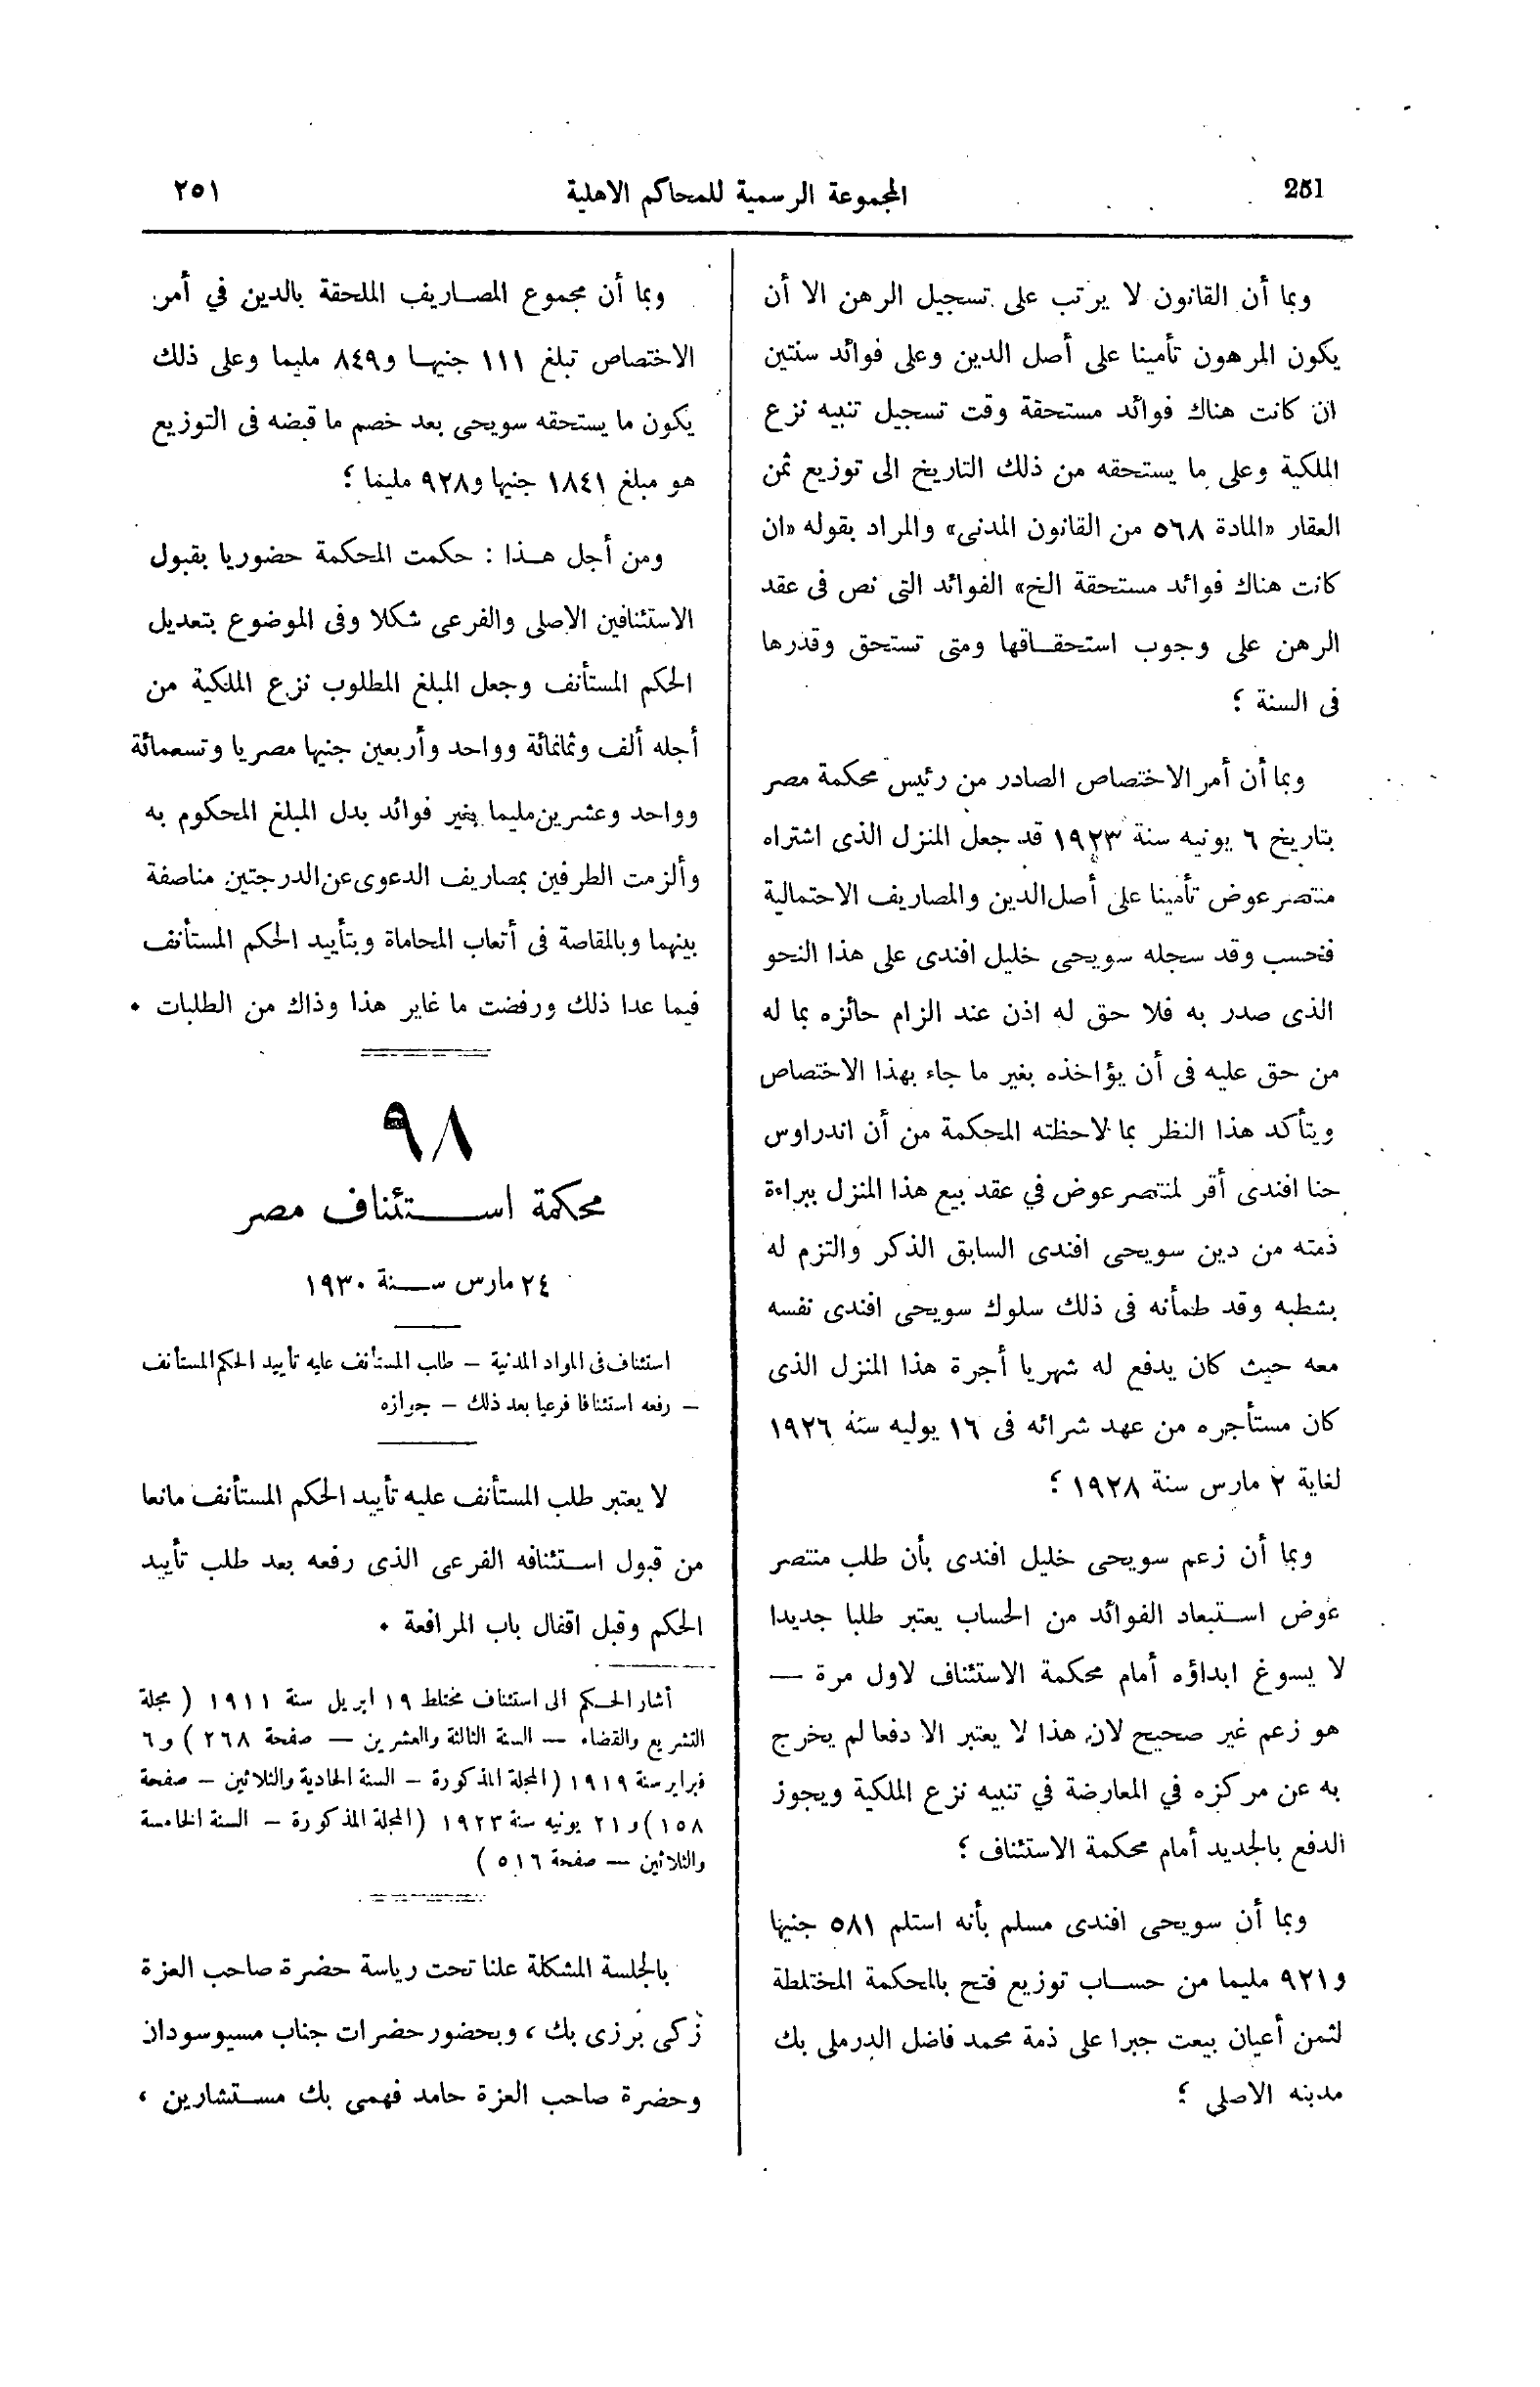 251
المجموعة الرسمية للمحاكم الاهلية
٢٥١
وبما أن القانون لا يرتب على تسجيل الرهن الا أن
يكون المرهون تأمينا على أصل الدين وعلى فوائد سنتين
ان كانت هناك فوائد مستحقة وقت تسجيل تنبيه نزع
الملكية وعلى ما يستحقه من ذلك التاريخ الى توزيع ثمن
العقار «المادة ٥٦٨ من القانون المدنى» والمراد بقوله «ان
كانت هناك فوائد مستحقة الخ» الفوائد التى نص فى عقد
الرهن على وجوب استحقاقها ومتى تستحق وقدرها
فى السنة ؛
وبما أن أمر الاختصاص الصادر من رئيس محكمة مصر
بتاريخ ٦ يونيه سنة ١٩٢٣ قد جعل المنزل الذى اشتراه
منتصر عوض تأمينا على أصل الدين والمصاريف الاحتمالية
فحسب وقد سجله سويحى خليل افندى على هذا النحو
الذى صدر به فلا حق له اذن عند الزام حائزه بما له
من حق عليه فى أن يؤاخذه بغير ما جاء بهذا الاختصاص
ويتأكد هذا النظر بما لاحظته المحكمة من أن اندراوس
حنا افندى أقر لمنتصر عوض في عقد بيع هذا المنزل ببراءة
ذمته من دين سويحى افندى السابق الذكر والتزم له
بشطبه وقد طمأنه فى ذلك سلوك سويحى افندى نفسه
معه حيث كان يدفع له شهريا أجرة هذا المنزل الذى
كان مستأجره من عهد شرائه فى ١٦ يوليه سنة ١٩٢٦
لغاية ٢ مارس سنة ١٩٢٨ ؛
وبما أن زعم سويحى خليل افندى بأن طلب منتصر
عوض استبعاد الفوائد من الحساب يعتبر طلبا جديدا
لا يسوغ ابداؤه أمام محكمة الاستئناف لاول مرة —
هو زعم غير صحيح لان هذا لا يعتبر الا دفعا لم يخرج
به عن مركزه في المعارضة في تنبيه نزع الملكية ويجوز
الدفع بالجديد أمام محكمة الاستئناف ؛
وبما أن سويحى افندى مسلم بأنه استلم ٥٨١ جنيها
و٩٢١ مليما من حساب توزيع فتح بالمحكمة المختلطة
لثمن أعيان بيعت جبرا على ذمة محمد فاضل الدرملى بك
مدينه الاصلى ؛
وبما أن مجموع المصاريف الملحقة بالدين في أمر
الاختصاص تبلغ ١١١ جنيها و٨٤٩ مليما وعلى ذلك
يكون ما يستحقه سويحى بعد خصم ما قبضه فى التوزيع
هو مبلغ ١٨٤١ جنيها و٩٢٨ مليما ؛
ومن أجل هذا : حكمت المحكمة حضوريا بقبول
الاستئنافين الاصلى والفرعى شكلا وفى الموضوع بتعديل
الحكم المستأنف وجعل المبلغ المطلوب نزع الملكية من
أجله ألف وثمانمائة وواحد وأربعين جنيها مصريا وتسعمائة
وواحد وعشرين مليما بغير فوائد بدل المبلغ المحكوم به
وألزمت الطرفين بمصاريف الدعوى عن الدرجتين مناصفة
بينهما وبالمقاصة فى أتعاب المحاماة وبتأييد الحكم المستأنف
فيما عدا ذلك ورفضت ما غاير هذا وذاك من الطلبات .
٩٨
محكمة استئناف مصر
٢٤ مارس سنة ١٩٣٠
استئناف فى المواد المدنية – طلب المستأنف عليه تأييد الحكم المستأنف
– رفعه استئنافا فرعيا بعد ذلك – جوازه
لا يعتبر طلب المستأنف عليه تأييد الحكم المستأنف مانعا
من قبول استئنافه الفرعى الذى رفعه بعد طلب تأييد
الحكم وقبل اقفال باب المرافعة .
أشار الحكم الى استئناف مختلط ١٩ ابريل سنة ١٩١١ ( مجلة
التشريع والقضاء — السنة الثالثة والعشرين — صفحة ٢٦٨ ) و٦
فبراير سنة ١٩١٩ (المجلة المذكورة – السنة الحادية والثلاثين – صفحة
١٥٨ ) و٢١ يونيه سنة ١٩٢٣ (المجلة المذكورة – السنة الخامسة
والثلاثين — صفحة ٥١٦ )
بالجلسة المشكلة علنا تحت رياسة حضرة صاحب العزة
زكى برزى بك ، وبحضور حضرات جناب مسيو سودان
وحضرة صاحب العزة حامد فهمى بك مستشارين ،